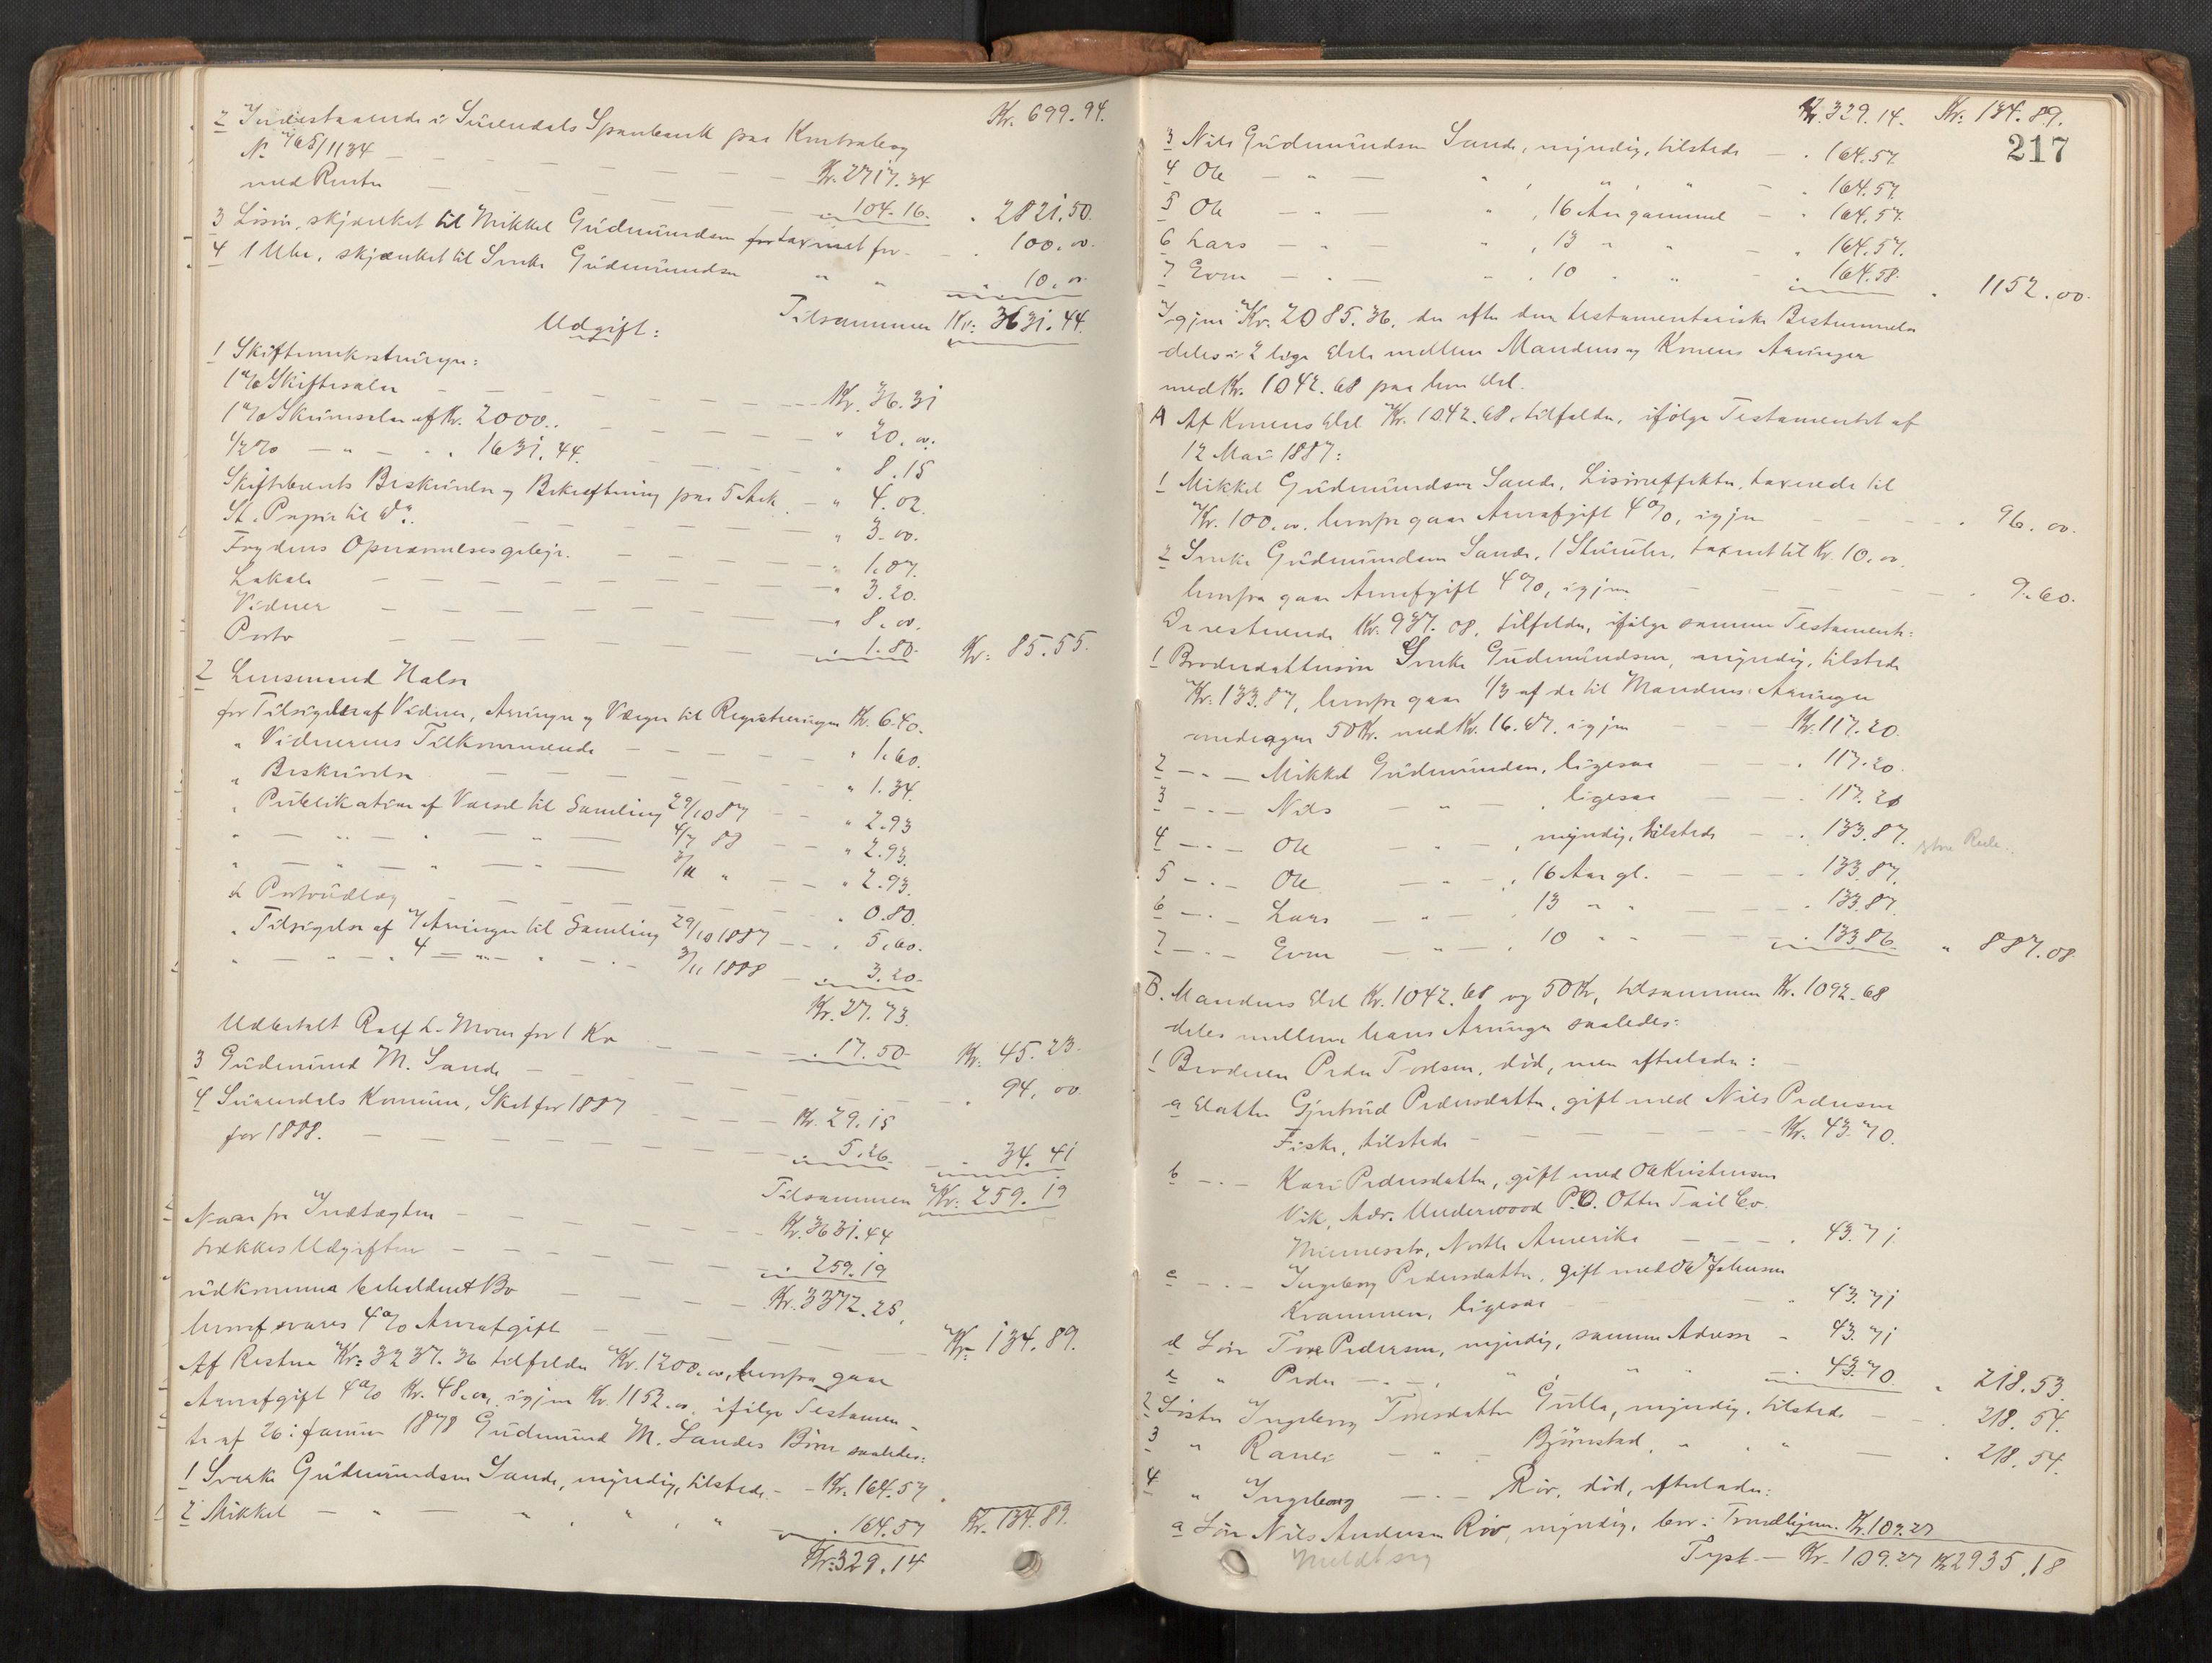 Kr. 699.94.
2 Indestaaende i Surendals Sparebank paa Kontrabog
No 765/1134 — Kr. 2717.34
med Renter — " 104.16. " 2821.50.
3 Lisøre, skjænket til Mikkel Gudmundsen taxeret for — " 100.00.
4 1 Uhr, skjænket til Sverke Gudmundsen " " " 10.00
Tilsammen Kr: 3631.44.
Udgift:
1 Skifteomkostninger:
1% Skiftesalær — Kr. 36.31
1% Skriversalær af Kr. 2000.. — " 20.00.
1/2% — " — " 1631.44. — " 8.15
Skiftebrevets Beskrivelse og Bekræftning paa 5 Ark — " 4.02.
St. Papir til do. — " 3.00.
Fogdens Opnævnelsesgebyr. — " 1.07.
Lokale — " 3.20.
Vidner — " 8.00.
Porto — " 1.80. Kr: 85.55.
2 Lensmand Halse
for Tilsigelse af Vidner, Arvinger og Værger til Registreringen Kr. 6.40.
" Vidnernes Tilkommende — " 1.60.
" Beskrivelse — " 1.34.
" Publikation af Varsel til Samling 29/10 87 — " 2.93
" — " — " — " — 4/7 88 — " 2.93.
" — " — " — 3/11 " — " 2.93.
" Portoudlæg — " 0.80.
" Tilsigelse af 7 Arvinger til Samling 29/10 1887 — " 5.60.
" — " — " 4 — " — " — " — 3/11 1888 — " 3.20.
Kr. 27.73.
Udbetalt Ralf L. Moen for 1 Ko — " 17.50. Kr. 45.23.
3 Gudmund M. Sande — " 94.00.
4 Surendals Kommune, Skat for 1887 — Kr. 29.15
for 1888. — " 5.26. " 34.41
Tilsammen Kr: 259.19
Naar fra Indtægten — Kr. 3631.44
trækkes Udgiften — " 259.19
udkommer beholdent Bo — Kr. 3372.25,
hvoraf svares 4% Arveafgift — Kr. 134.89.
Af Resten Kr: 3237.36 tilfalder Kr. 1200.00, hvorfra gaar
Arveafgift 4% Kr. 48.00, igjen Kr. 1152.00. ifølge Testamen-
te af 26: Januar 1878 Gudmund M. Sandes Børn saaledes:
1 Sverke Gudmundsen Sande, myndig, tilstede — Kr. 164.57.
2 Mikkel — " — " , " , " — " 164.57 Kr. 134.89.
Kr: 329.14
217
Kr. 329.14. Kr: 134.89.
3 Nils Gudmundsen Sande, myndig, tilstede — " 164.57.
4 Ole — " — " , " , " — " 164.57.
5 Ole — " — " , 16 Aar gammel — " 164.57.
6 Lars — " — " , 13 " " — " 164.57.
7 Even — " — " , 10 " " " 164.58. " 1152.00.
Igjen Kr. 2085.36, der efter den testamentariske Bestemmelse
deles i 2 lige Dele mellem Mandens og Konens Arvinger
med Kr. 1042.68 paa hver Del.
A Af Konens Del Kr. 1042.68. tilfalder, ifølge Testamentet af
12 Mai 1887:
1 Mikkel Gudmundsen Sande, Lisøreffekter, taxerede til
Kr. 100.00. hvorfra gaar Arveafgift 4%, igjen — " 96.00.
2 Sverke Gudmundsen Sande, 1 Stueuhr, taxeret til Kr. 10.00
hvorfra gaar Arveafgift 4%, igjen — " 9.60.
De resterende Kr. 937.08, tilfalder, ifølge samme Testament:
1 Broderdattersøn Sverke Gudmundsen, myndig, tilstede
Kr. 133.87, hvorfra gaar 1/3 af de til Mandens Arvinger
50 Kr. med Kr. 16.67. igjen — Kr. 117.20.
2 — " — Mikkel Gudmundsen, ligesaa — " 117.20.
3 — " — Nils — " — , ligesaa — " 117.20
4 — " — Ole — " — , myndig, tilstede — " 133.87.
5 — " — Ole — " — , 16 Aar gl. — " 133.87.
6 — " — Lars — " — , 13 " " — " 133.87.
7 — " — Even — " — , 10 " " — " 133.86. " 887.08.
B. Mandens Del Kr. 1042.68 og 50 Kr, tilsammen Kr. 1092.68
deles mellem hans Arvinger saaledes:
1 Broderen Peder Toresen, død, men efterlader: —
a Datter Gjertrud Pedersdatter, gift med Nils Pedersen
Fiske, tilstede — Kr. 43.70.
b — " — Kari Pedersdatter, gift med Ole Kristensen
Vik, Adr. Underwood P.O. Otter Tail Co.
Minnesota, North Amerika — " 43.71
c — " — Ingeborg Pedersdatter, gift med Ole Johnsen
Kvammen, ligesaa — " 43.71
d Søn Tore Pedersen, myndig, samme Adresse — 43.71
e " Peder — " — , " , " " — " 43.70 " 218.53.
2 Søster Ingeborg Toresdatter Gulla, myndig, tilstede — " 218.54.
3 " Randi — " — Bjørnstad, " , " — " 218.54.
4 " Ingeborg — " — Røv, død, efterlader:
a Søn Nils Andersen Røv, myndig, bor i Trondhjem. Kr. 109.27
Kr. 109.27 Kr. 2935.18